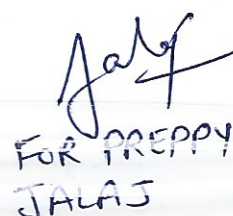 FOR PREPPY
JALAJ